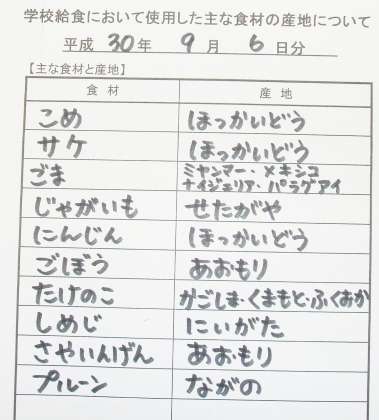 学校給食において使用した主な食材の産地について
平成 30年 9月 6日分
【主な食材と産地】
食材 産地
こめ ほっかいどう
サケ ほっかいどう
ごま ミャンマー・メキシコ
ナイジェリア・パラグアイ
じゃがいも せたがや
にんじん ほっかいどう
ごぼう あおもり
たけのこ かごしま・くまもと・ふくおか
しめじ にいがた
さやいんげん あおもり
プルーン ながの